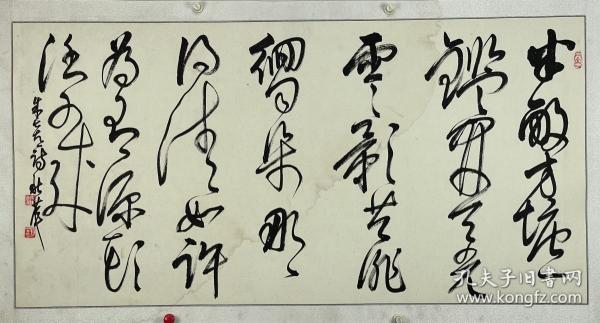 半畝方塘一
鑑開天光
雲影共徘
徊問渠那
得清如許
為有源頭
活水来
朱熹詩
孔夫子旧书网
www.kongfz.com